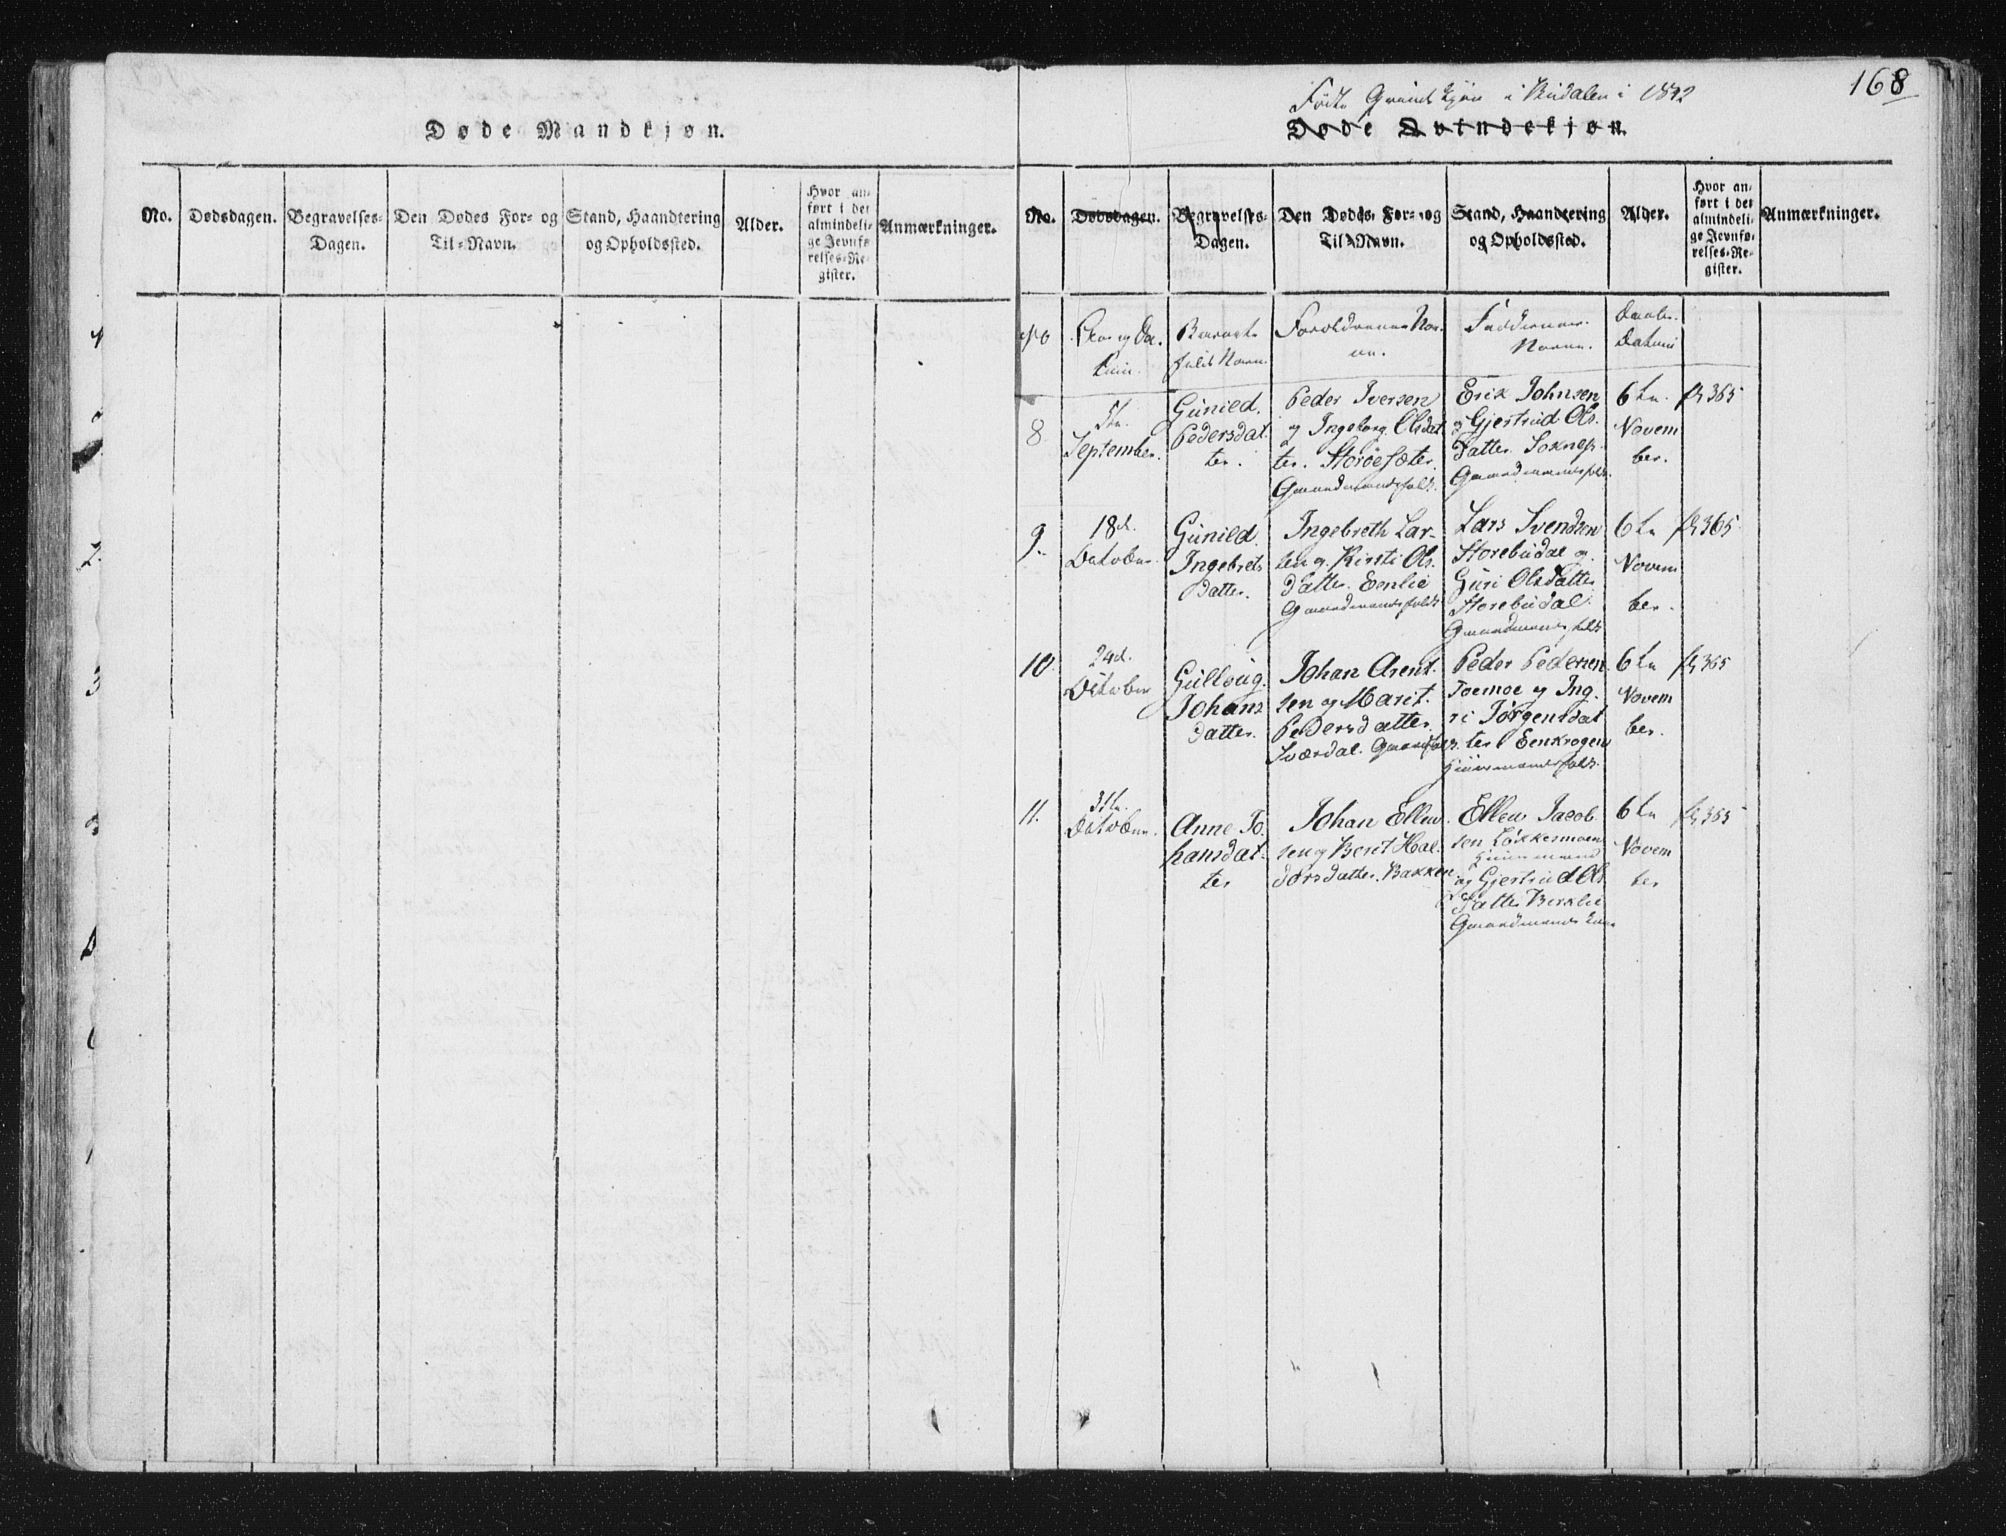 168
Døde Mandkjøn.
No.
Dødsdagen.
Begravelses-
Dagen.
Den Dødes For- og
Til-Navn.
Stand, Haandtering
og Opholdssted.
Alder.
Hvor an-
ført i det
almindeli-
ge Jevnfø-
relses-Re-
gister.
Anmærkninger.
Fødte Qvindekjøn i Budalen i 1842
Døde Qvindekjøn.
No.
Dødsdagen.
Begravelses-
Dagen.
Den Dødes For- og
Til-Navn.
Stand, Haandtering
og Opholdssted.
Alder.
Hvor an-
ført i det
almindeli-
ge Jevnfø-
relses-Re-
gister.
Anmærkninger.
No
Aar og Da-
tum.
Barnets
fulde Navn.
Forældrenes Nav-
ne.
Faddernes
Navne.
Daabs-
Datum
8
5te
September.
Gunild
Pedersdat-
ter.
Peder Iversen
og Ingeborg Olsdat-
ter. Storøesæter.
Gaardmandsfolk.
Erik Johnsen
og Gjertrud Ols-
datter Soknæs.
Gaardmandsfolk.
6te
Novem
ber.
365
9.
18d.
October.
Gunild
Ingebrets
Datter.
Ingebreth Lar-
sen og Kirsti Ols-
datter Eenlie
Gaardmandsfolk
Lars Svendsen
Storebudal og
Guri Olsdatter
Storebudal.
Gaardmandsfolk
6te
Novem
ber.
365
10.
24d.
October
Gulloug
Johans
datter.
Johan Arent-
sen og Marit
Pedersdatter
Sværdal. Gaardfolk.
Peder Pedersen
Toemoe og Ing-
ri Jørgensdat
ter Eenkrogen
Huusmandsfolk.
6te
Novem
ber.
365
11.
31te
October.
Anne Jo-
hansdat-
ter
Johan Ellen-
sen og Berit Hal-
dorsdatter. Bakken.
Ellen Jacob-
sen Løkkermoen
Huusmand
og Gjertrud Ols
datter Berklie
Gaardmands
6te
Novem
ber
365